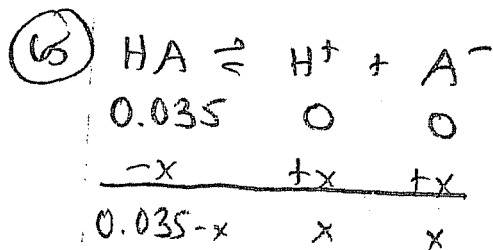 65 HA ⇌ H⁺ + A⁻
0.035 0 0
-x +x +x
0.035-x x x